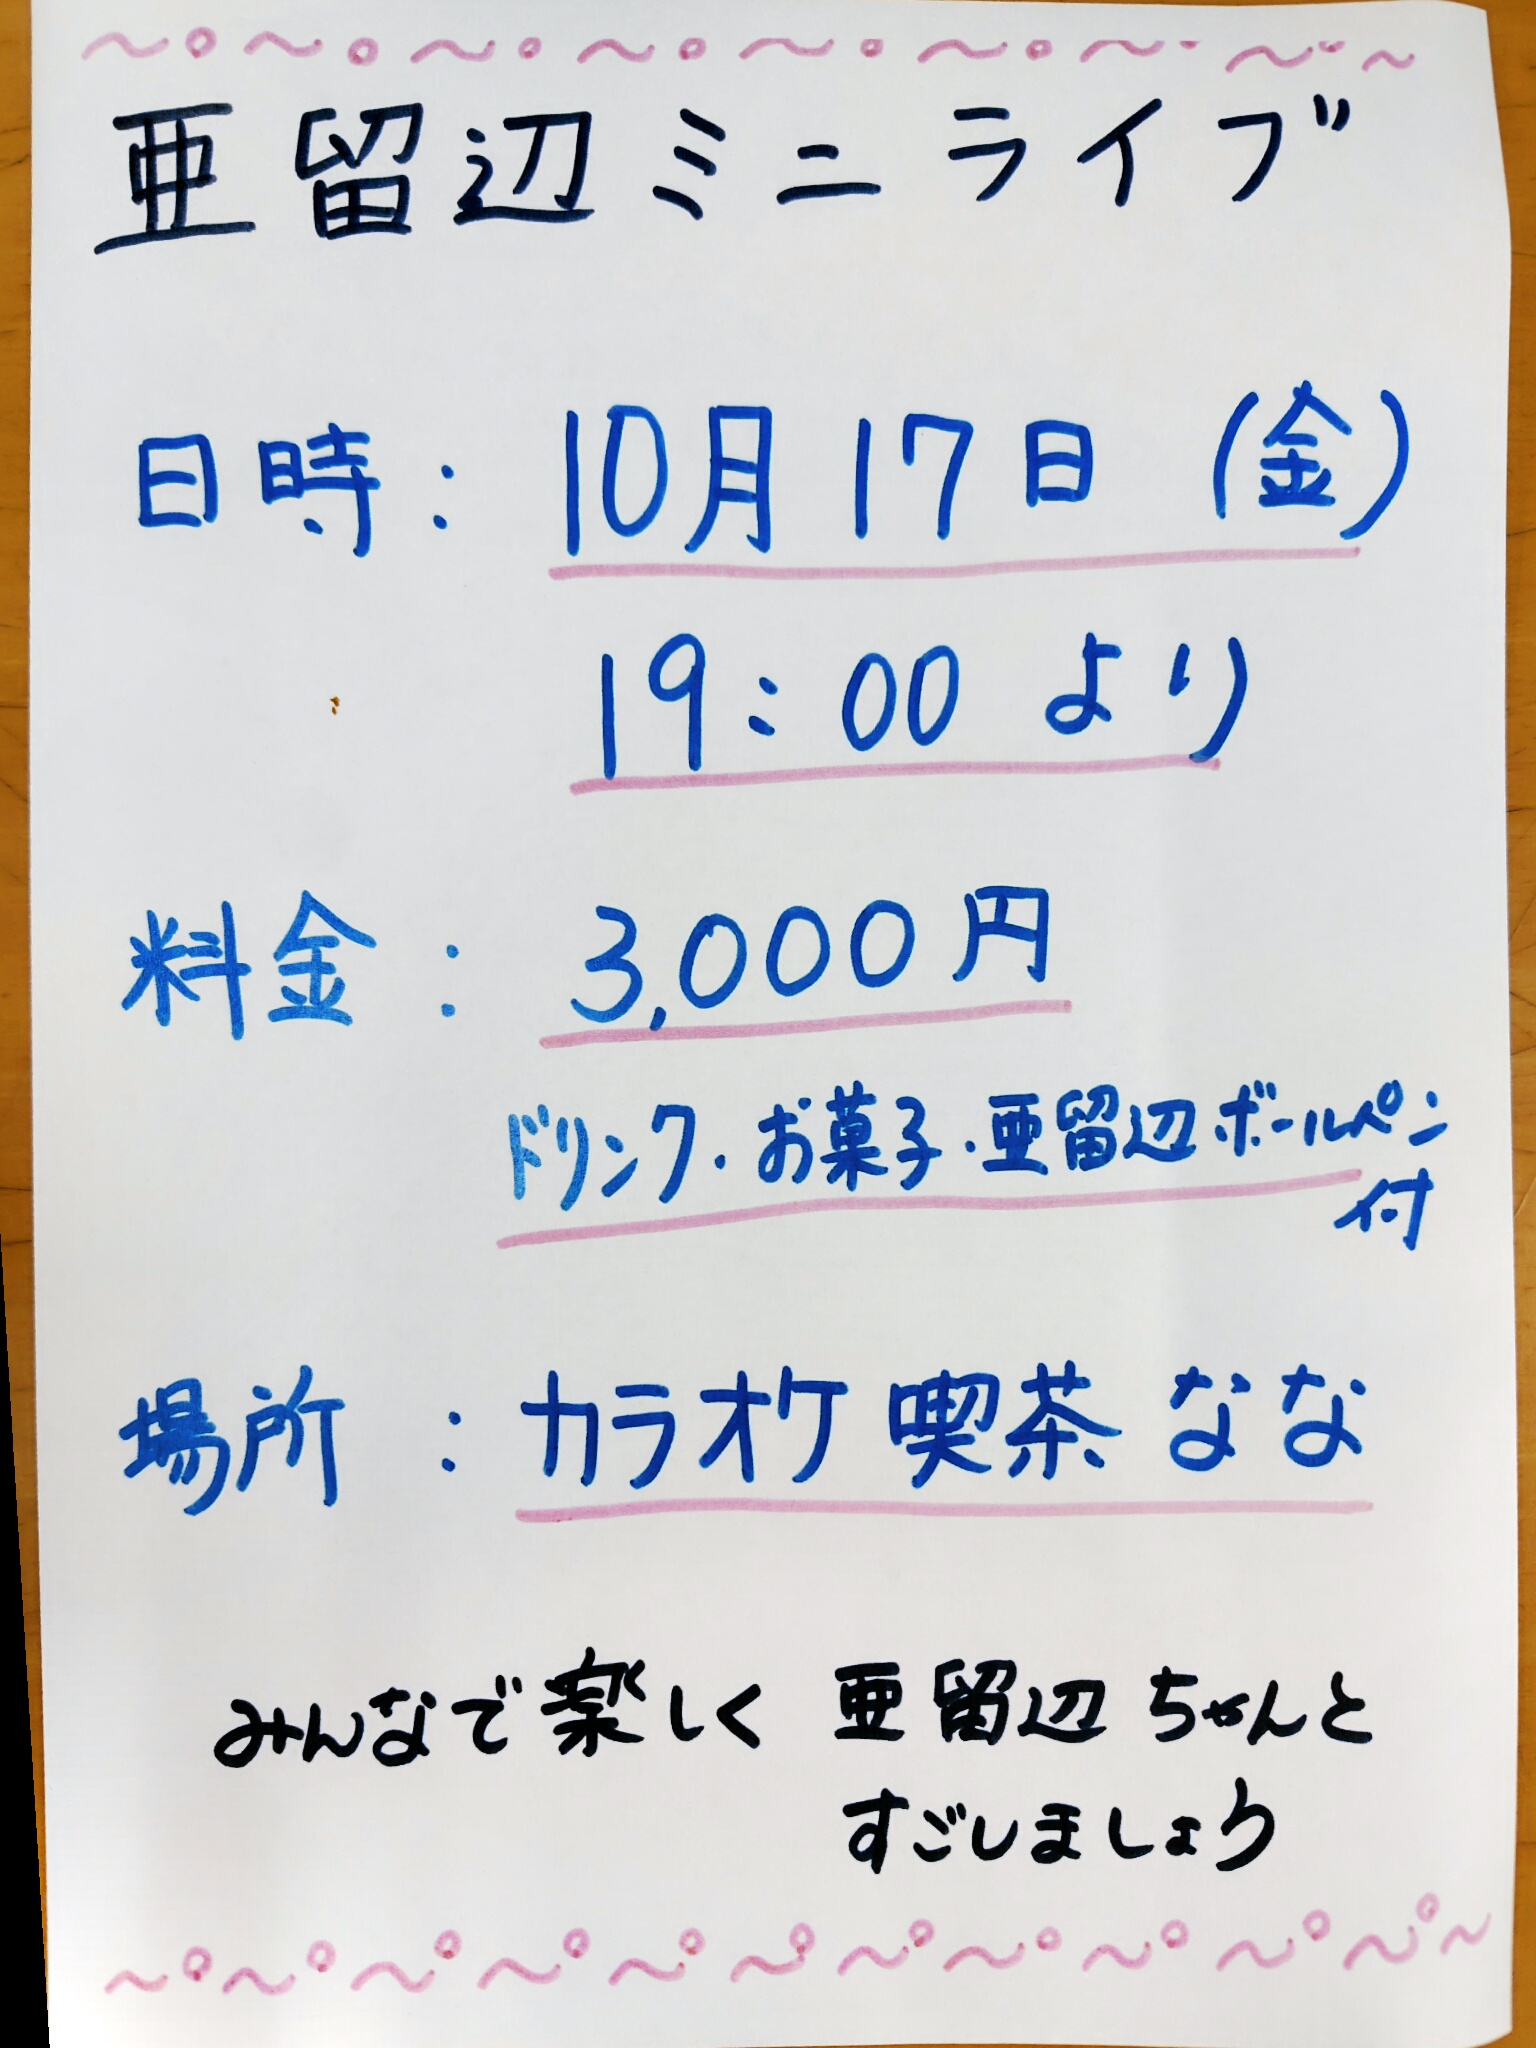 亜留辺ミニライブ
日時：10月17日（金）
19：00より
料金：3,000円
ドリンク・お菓子・亜留辺ボールペン
付
場所：カラオケ喫茶なな
みんなで楽しく 亜留辺ちゃんと
すごしましょう